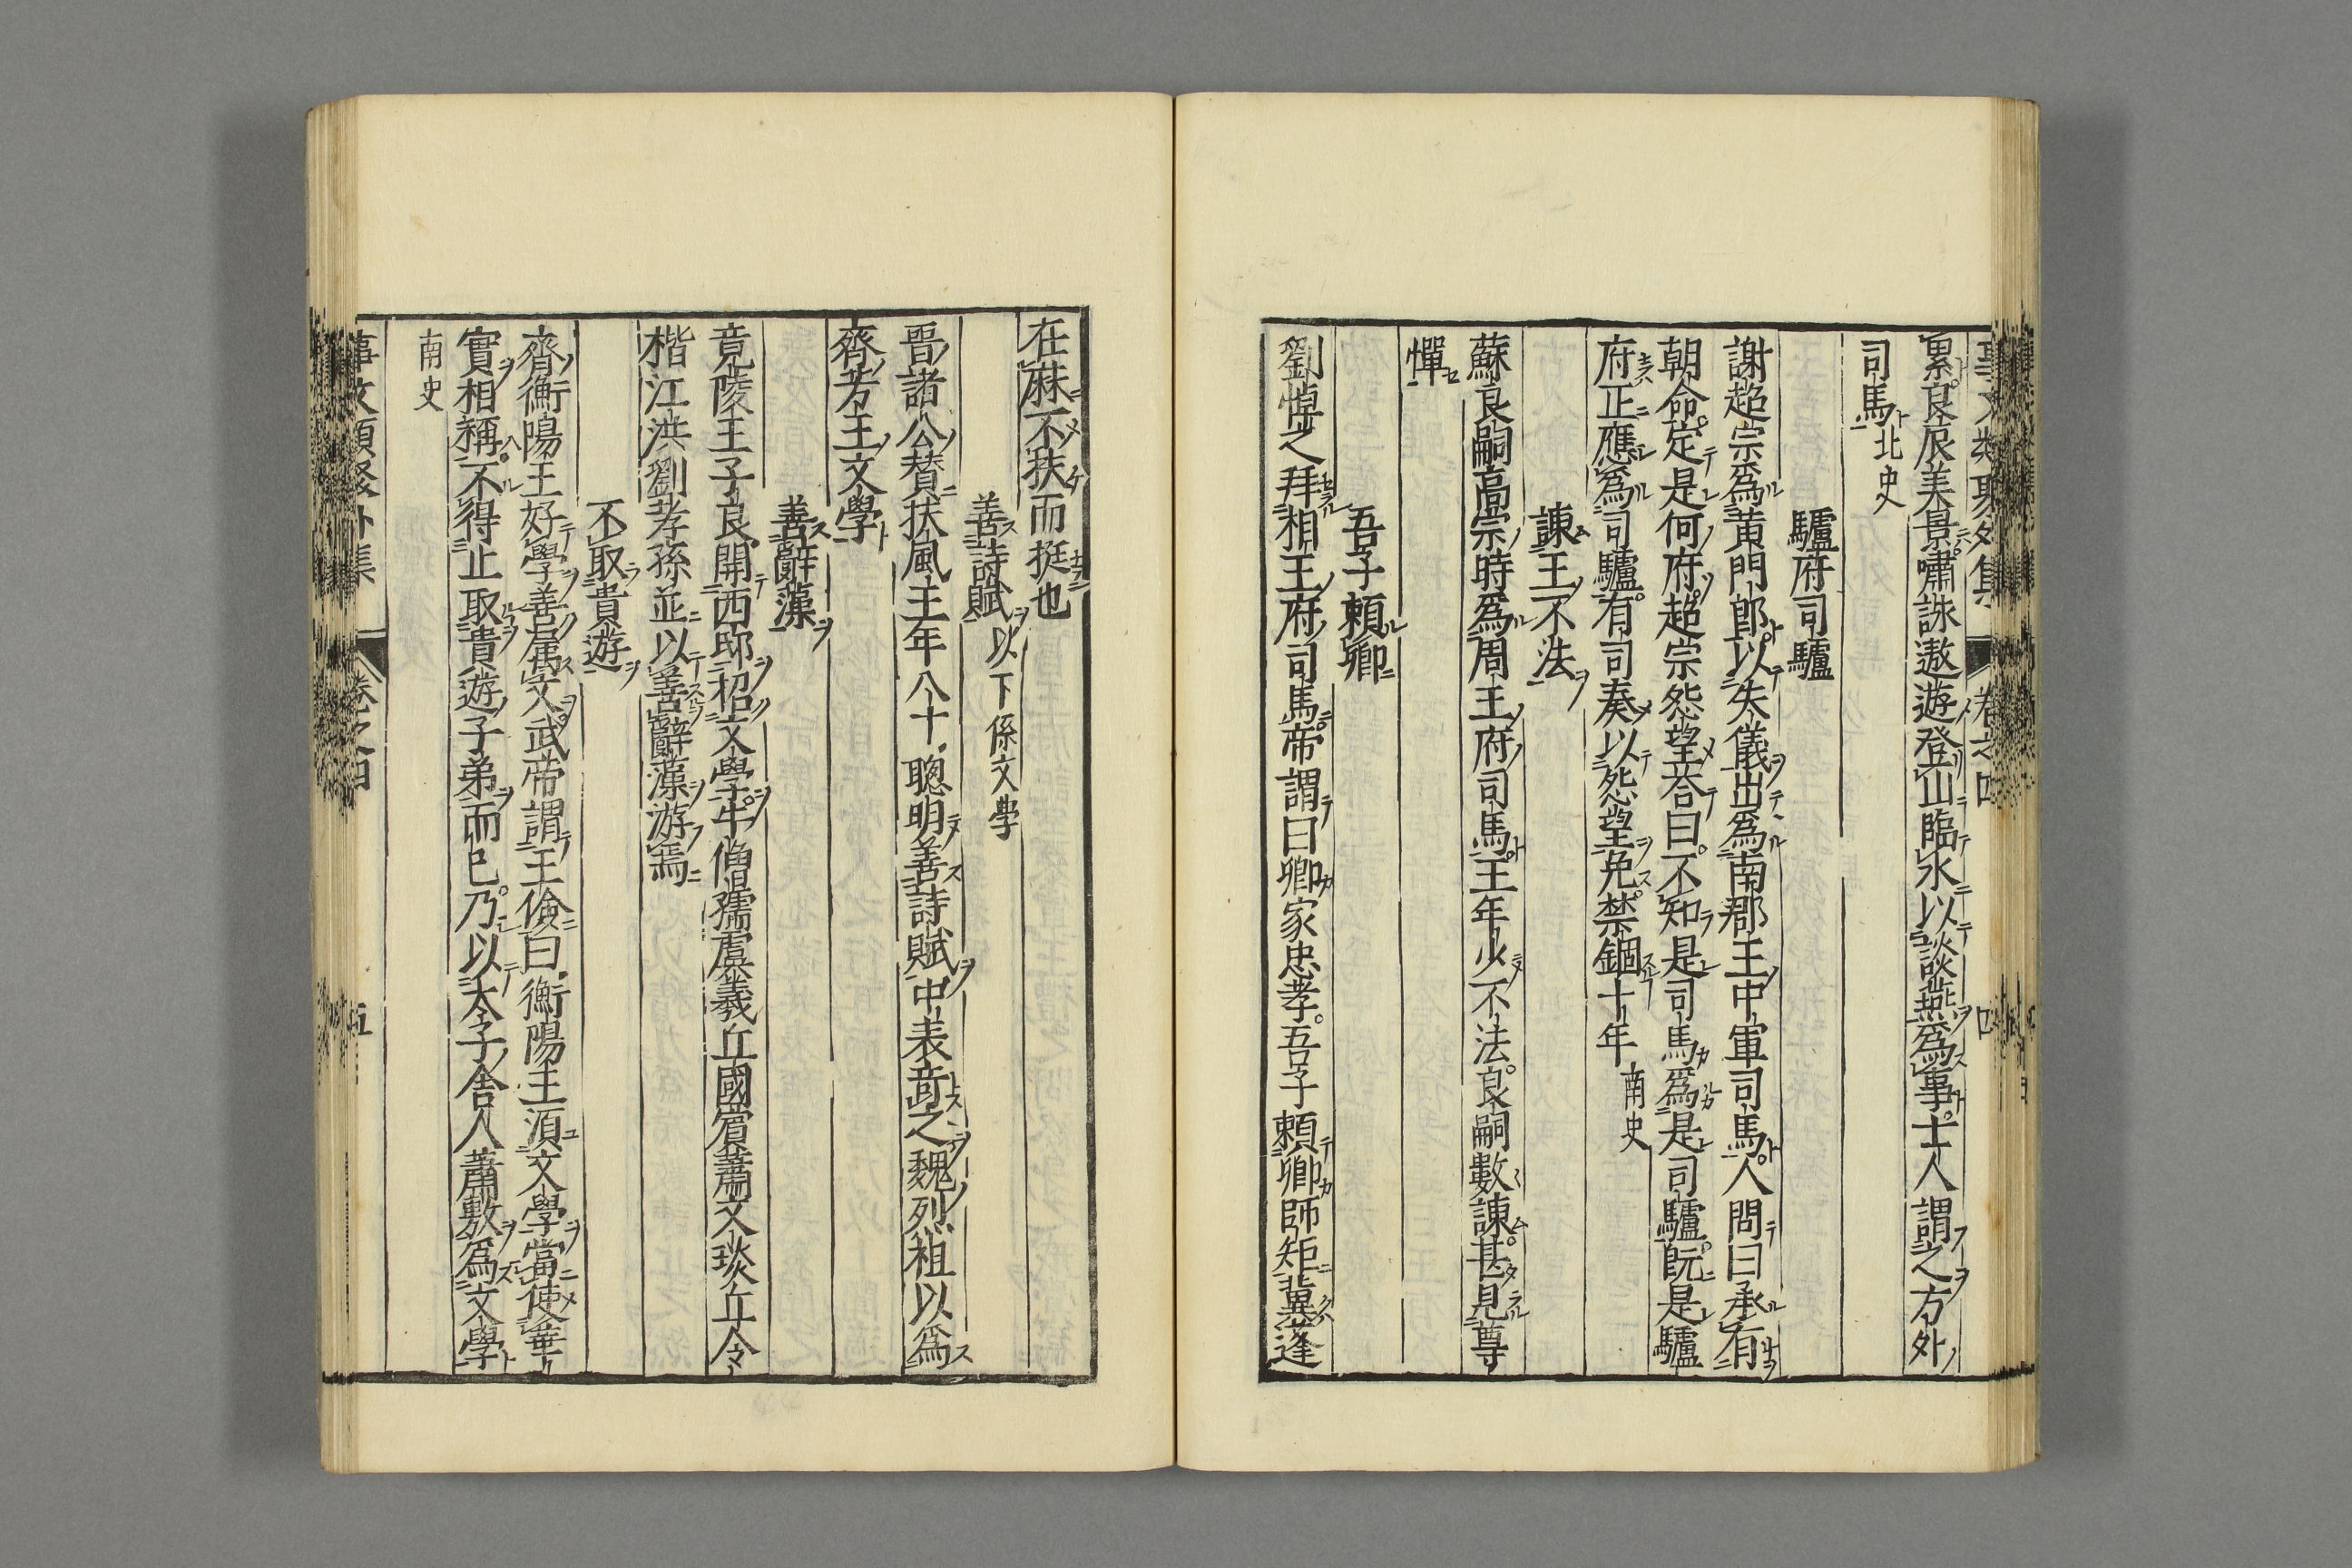 累良辰美景嘯詠遨遊登山臨水以談燕爲事士人謂之方外
司馬 北史
驢府司驢
謝超宗爲黃門郎以失儀出爲南郡王中軍司馬人問曰承有
朝命定是何府超宗怨望荅曰不知是司馬爲是司驢既是驢
府正應爲司驢有司奏以怨望免禁錮十年 南史
諫王不法
蘇良嗣高宗時爲周王府司馬王年少不法良嗣數諫甚見尊
憚
吾子頼卿
劉悼之拜相王府司馬帝謂曰卿家忠孝吾子頼卿師矩冀蓬
在麻不扶而挺也
善詩賦 以下係文學
晋諸公賛扶風王年八十聰明善詩賦中表竒之魏烈祖以爲
齊芳王文學
善辭藻
竟陵王子良開西邸招文學牛脩孺虞羲丘國賓蕭文琰丘令
楷江洪劉孝孫並以善辭藻游焉
不取貴遊
齊衡陽王好學善属文武帝謂王儉曰衡陽王湏文學當使華
實相稱不得止取貴遊子弟而已乃以太子舎人蕭敷爲文學
南史
事文類聚外集 卷之四 五